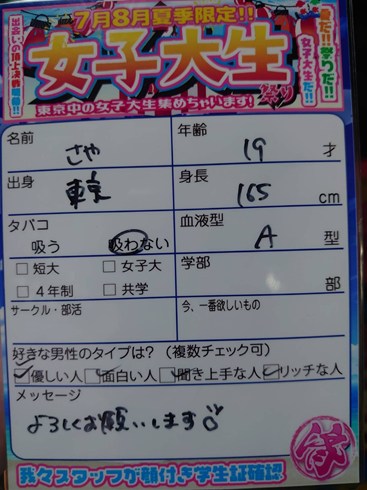 7月8月夏季限定!!
女子大生
祭り
東京中の女子大生集めちゃいます!
女子大生だ!!
名前
さや
年齢
19 才
出身
東京
身長
165 cm
タバコ
吸う 吸わない
血液型
A 型
□短大 □女子大
□4年制 □共学
学部
部
サークル・部活
今、一番欲しいもの
好きな男性のタイプは?(複数チェック可)
□優しい人 □面白い人 □聞き上手な人 □リッチな人
メッセージ
よろしくお願いします
我々スタッフが顔付き学生証確認